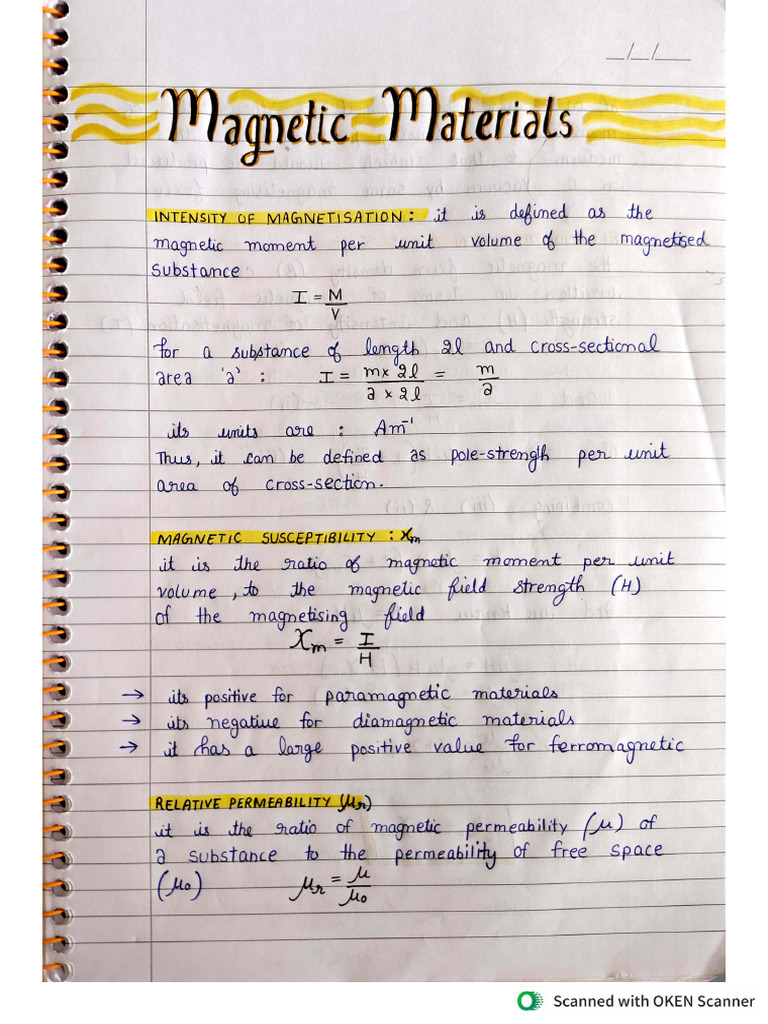 _/_/__
Magnetic Materials
INTENSITY OF MAGNETISATION: it is defined as the
magnetic moment per unit volume of the magnetised
substance
I = M/V
for a substance of length 2l and cross-sectional
area 'a' : I = m x 2l / a x 2l = m/a
its units are : Am⁻¹
Thus, it can be defined as pole-strength per unit
area of cross-section.
MAGNETIC SUSCEPTIBILITY : χm
it is the ratio of magnetic moment per unit
volume, to the magnetic field strength (H)
of the magnetising field
χm = I/H
→ its positive for paramagnetic materials
→ its negative for diamagnetic materials
→ it has a large positive value for ferromagnetic
RELATIVE PERMEABILITY (μr)
it is the ratio of magnetic permeability (μ) of
a substance to the permeability of free space
(μ₀) μr = μ/μ₀
Scanned with OKEN Scanner